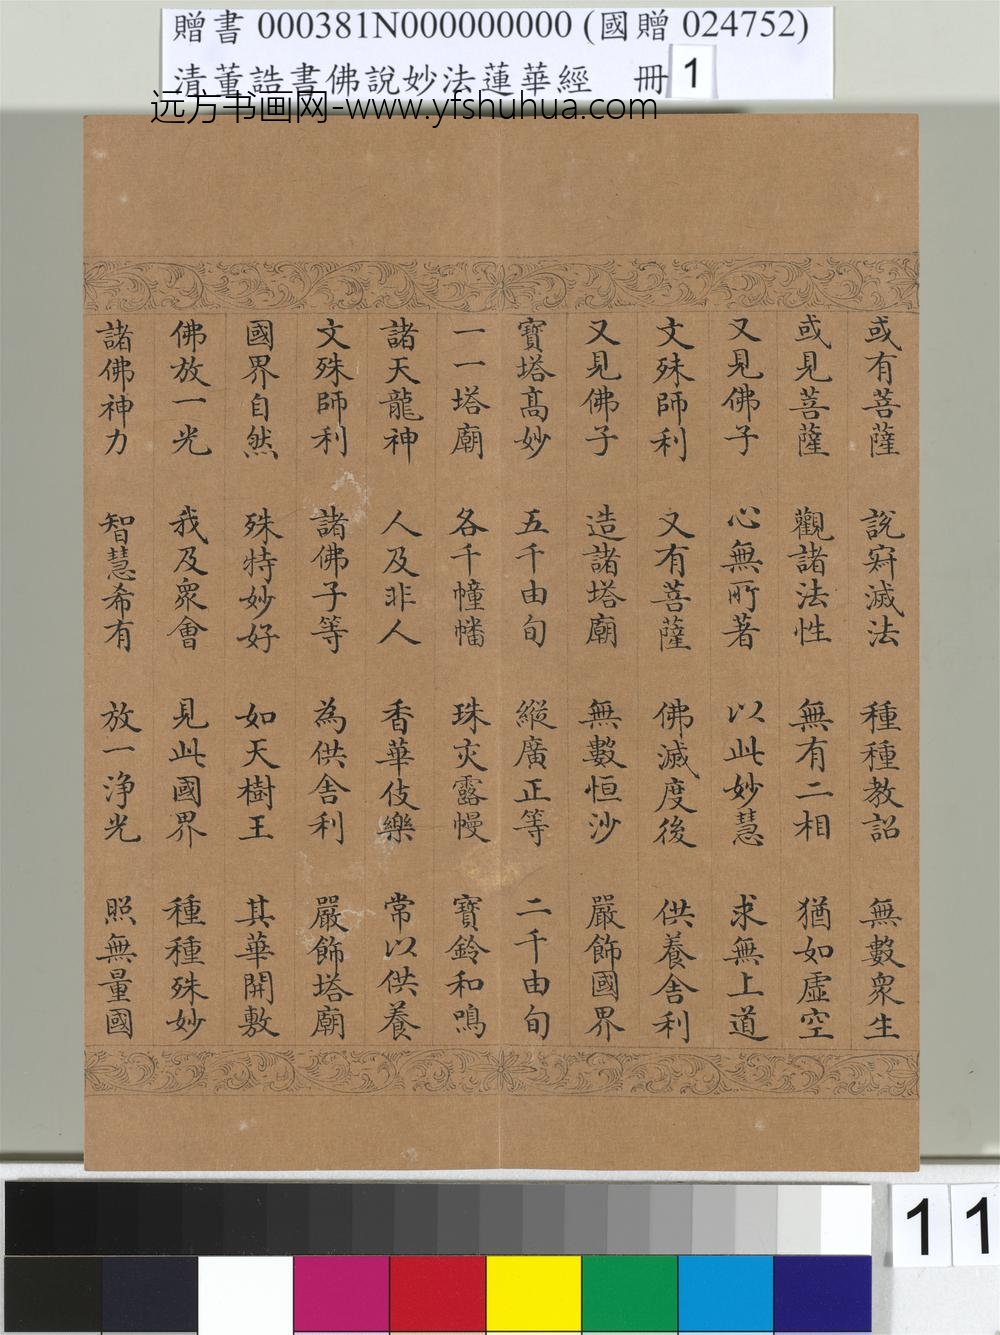 贈書 000381N000000000 (國贈 024752)
清董誥書佛說妙法蓮華經 冊 1
远方书画网-www.yfshuhua.com
或有菩薩 說寂滅法 種種教詔 無數眾生
或見菩薩 觀諸法性 無有二相 猶如虛空
又見佛子 心無所著 以此妙慧 求無上道
文殊師利 又有菩薩 佛滅度後 供養舍利
又見佛子 造諸塔廟 無數恒沙 嚴飾國界
寶塔高妙 五千由旬 縱廣正等 二千由旬
一一塔廟 各千幢幡 珠交露幔 寶鈴和鳴
諸天龍神 人及非人 香華伎樂 常以供養
文殊師利 諸佛子等 為供舍利 嚴飾塔廟
國界自然 殊特妙好 如天樹王 其華開敷
佛放一光 我及眾會 見此國界 種種殊妙
諸佛神力 智慧希有 放一淨光 照無量國
11